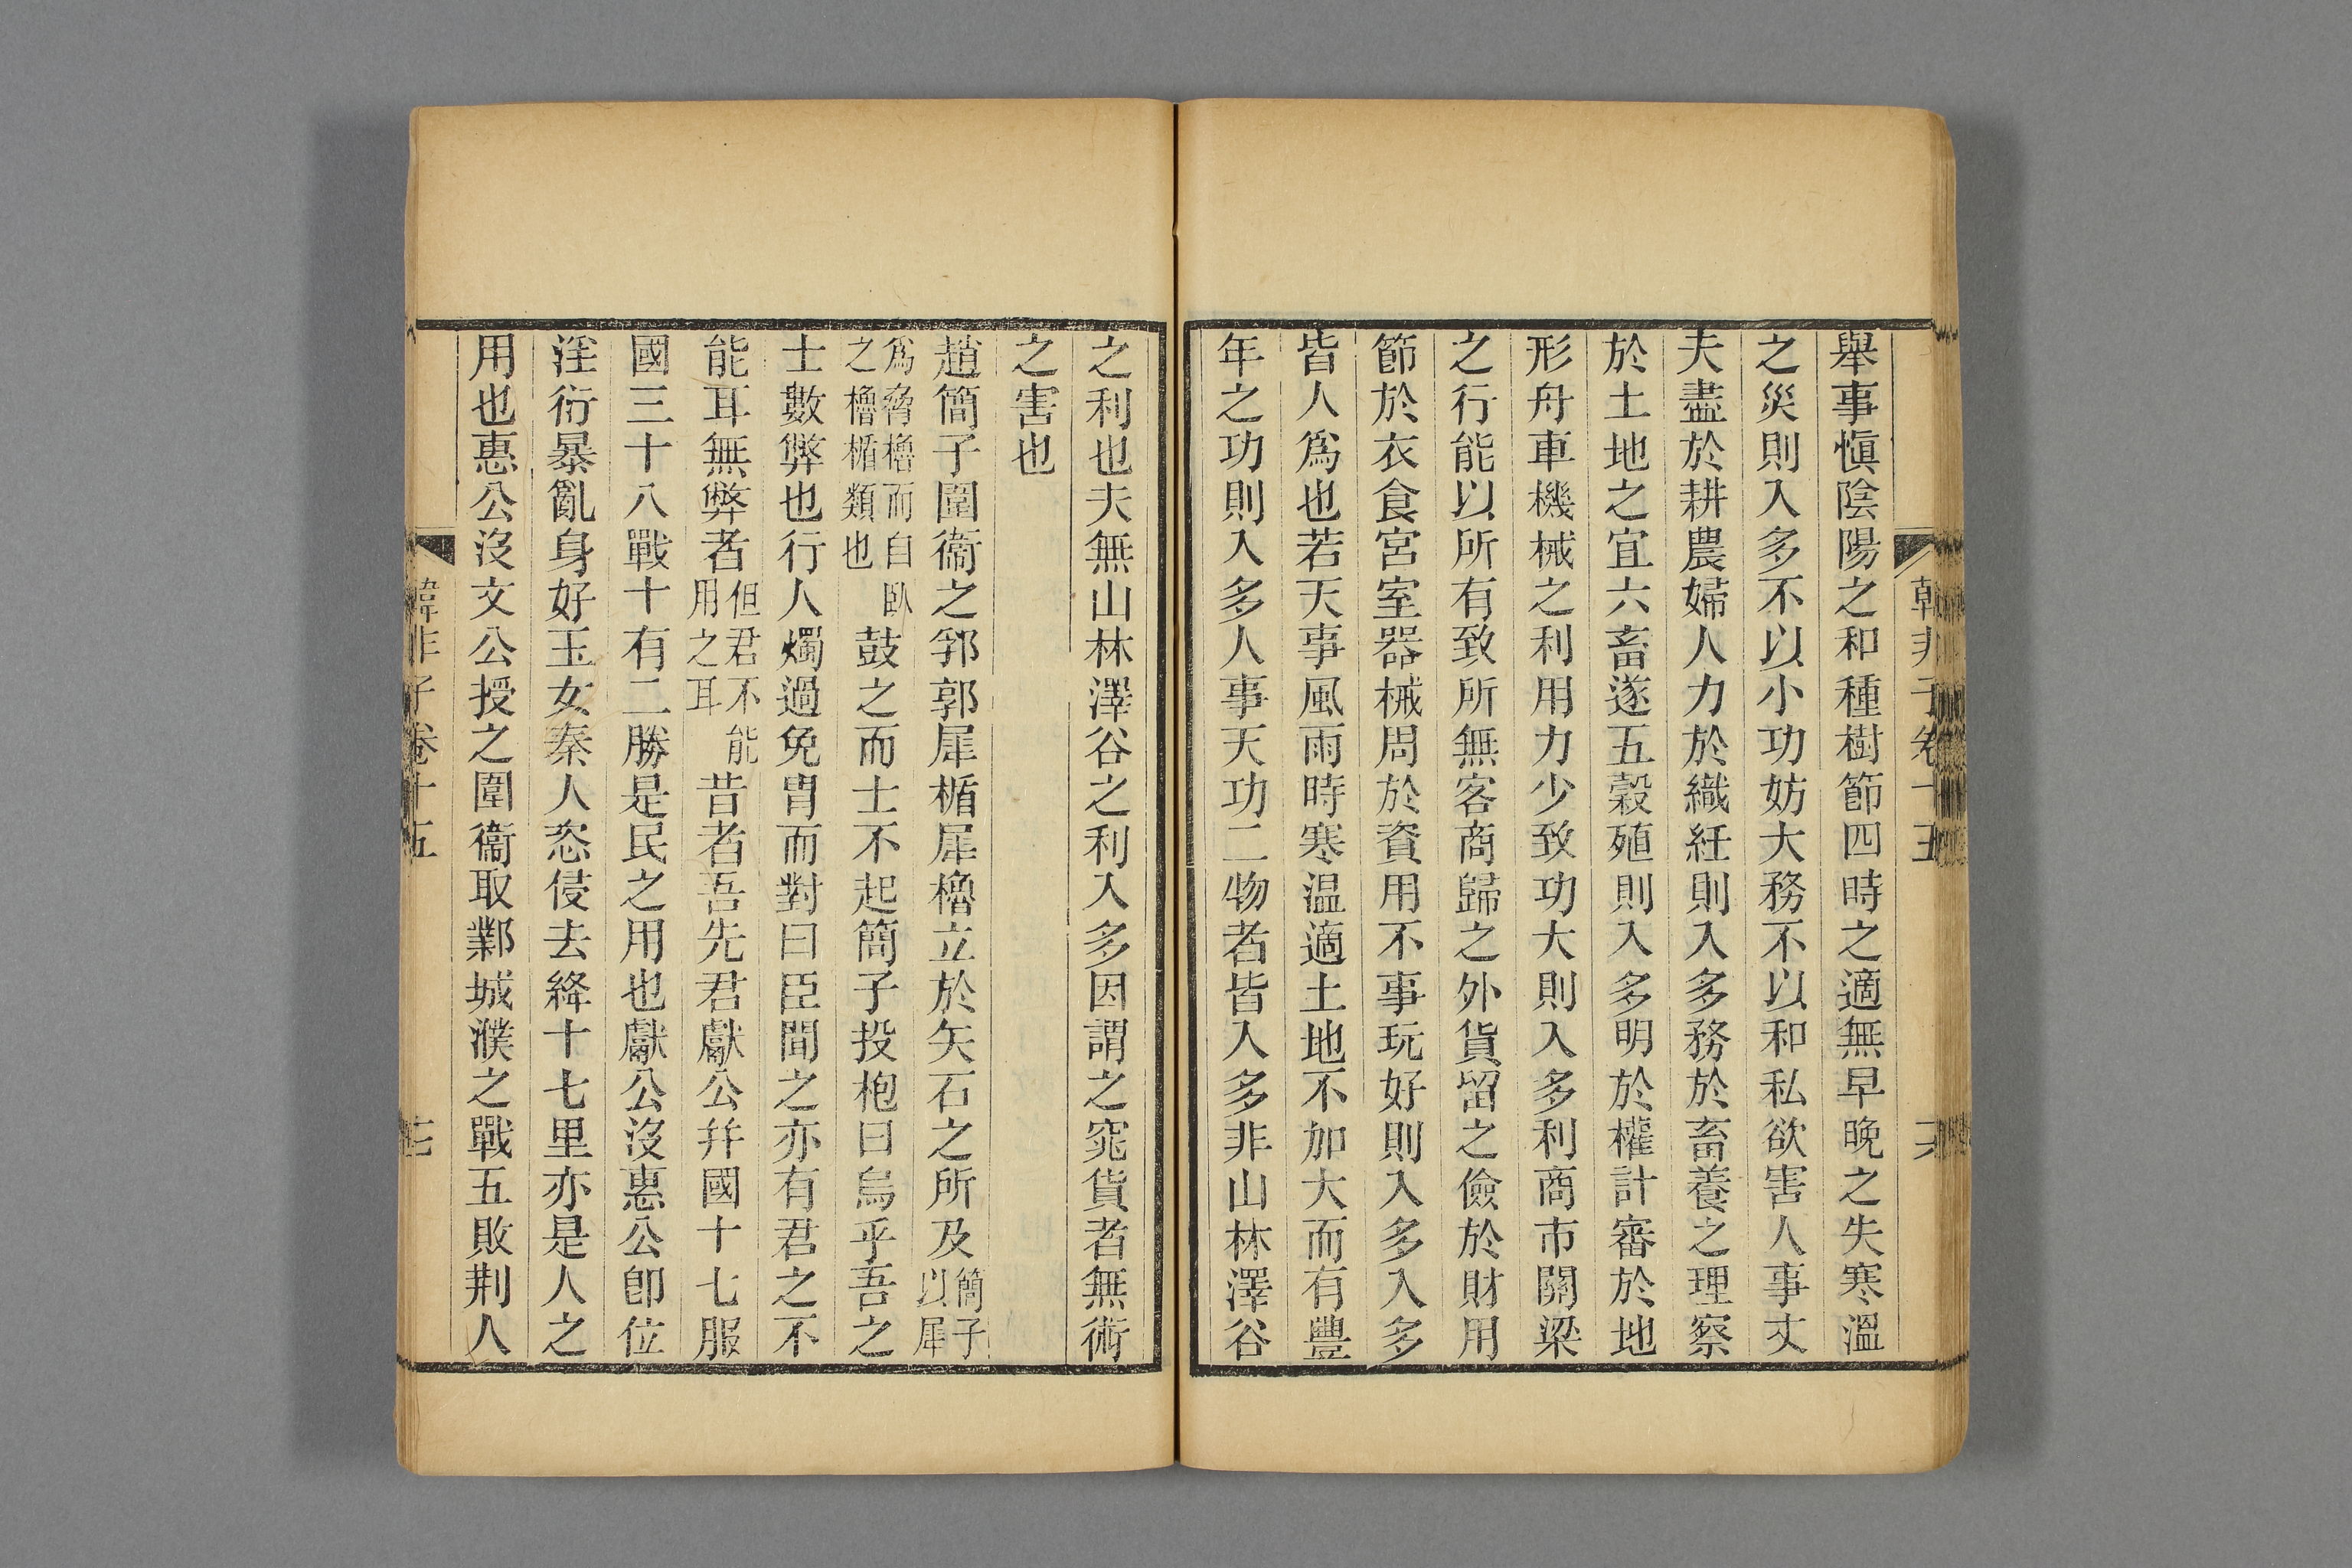 韓非子卷十五
十六
舉事慎陰陽之和種樹節四時之適無早晚之失寒溫
之災則入多不以小功妨大務不以和私欲害人事丈
夫盡於耕農婦人力於織紝則入多務於畜養之理察
於土地之宜六畜遂五穀殖則入多明於權計審於地
形舟車機械之利用力少致功大則入多利商市關梁
之行能以所有致所無客商歸之外貨留之儉於財用
節於衣食宮室器械周於資用不事玩好則入多入多
皆人為也若天事風雨時寒温適土地不加大而有豐
年之功則入多人事天功二物者皆入多非山林澤谷
之利也夫無山林澤谷之利入多因謂之窕貨者無術
之害也
趙簡子圍衞之郛郭犀楯犀櫓立於矢石之所及簡子以犀
為脅櫓而自臥之櫓楯類也鼓之而士不起簡子投枹曰烏乎吾之
士數弊也行人燭過免胄而對曰臣聞之亦有君之不
能耳無弊者但君不能用之耳昔者吾先君獻公并國十七服
國三十八戰十有二勝是民之用也獻公沒惠公即位
淫衍暴亂身好玉女秦人恣侵去絳十七里亦是人之
用也惠公沒文公授之圍衞取鄴城濮之戰五敗荆人
韓非子卷十五
十七